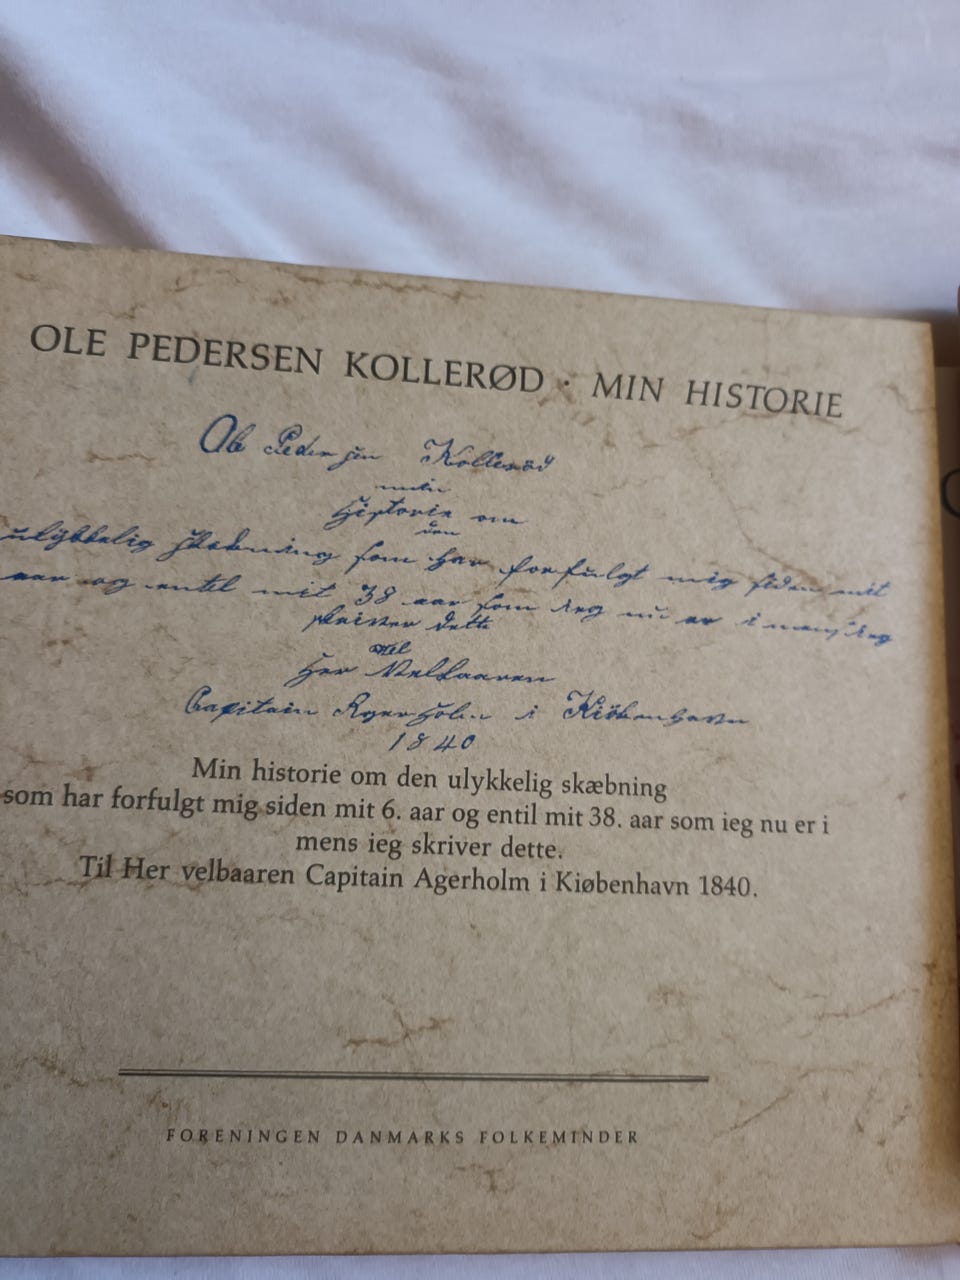 OLE PEDERSEN KOLLERØD · MIN HISTORIE
Ole Pedersen Kollerød
min
Historie om
den
ulykkelig skæbning som har forfulgt mig siden mit
aar og entil mit 38 aar som ieg nu er i mens ieg
skriver dette
til
Her Velbaaren
Capitain Agerholm i Kiøbenhavn
1840
Min historie om den ulykkelig skæbning
som har forfulgt mig siden mit 6. aar og entil mit 38. aar som ieg nu er i
mens ieg skriver dette.
Til Her velbaaren Capitain Agerholm i Kiøbenhavn 1840.
FORENINGEN DANMARKS FOLKEMINDER